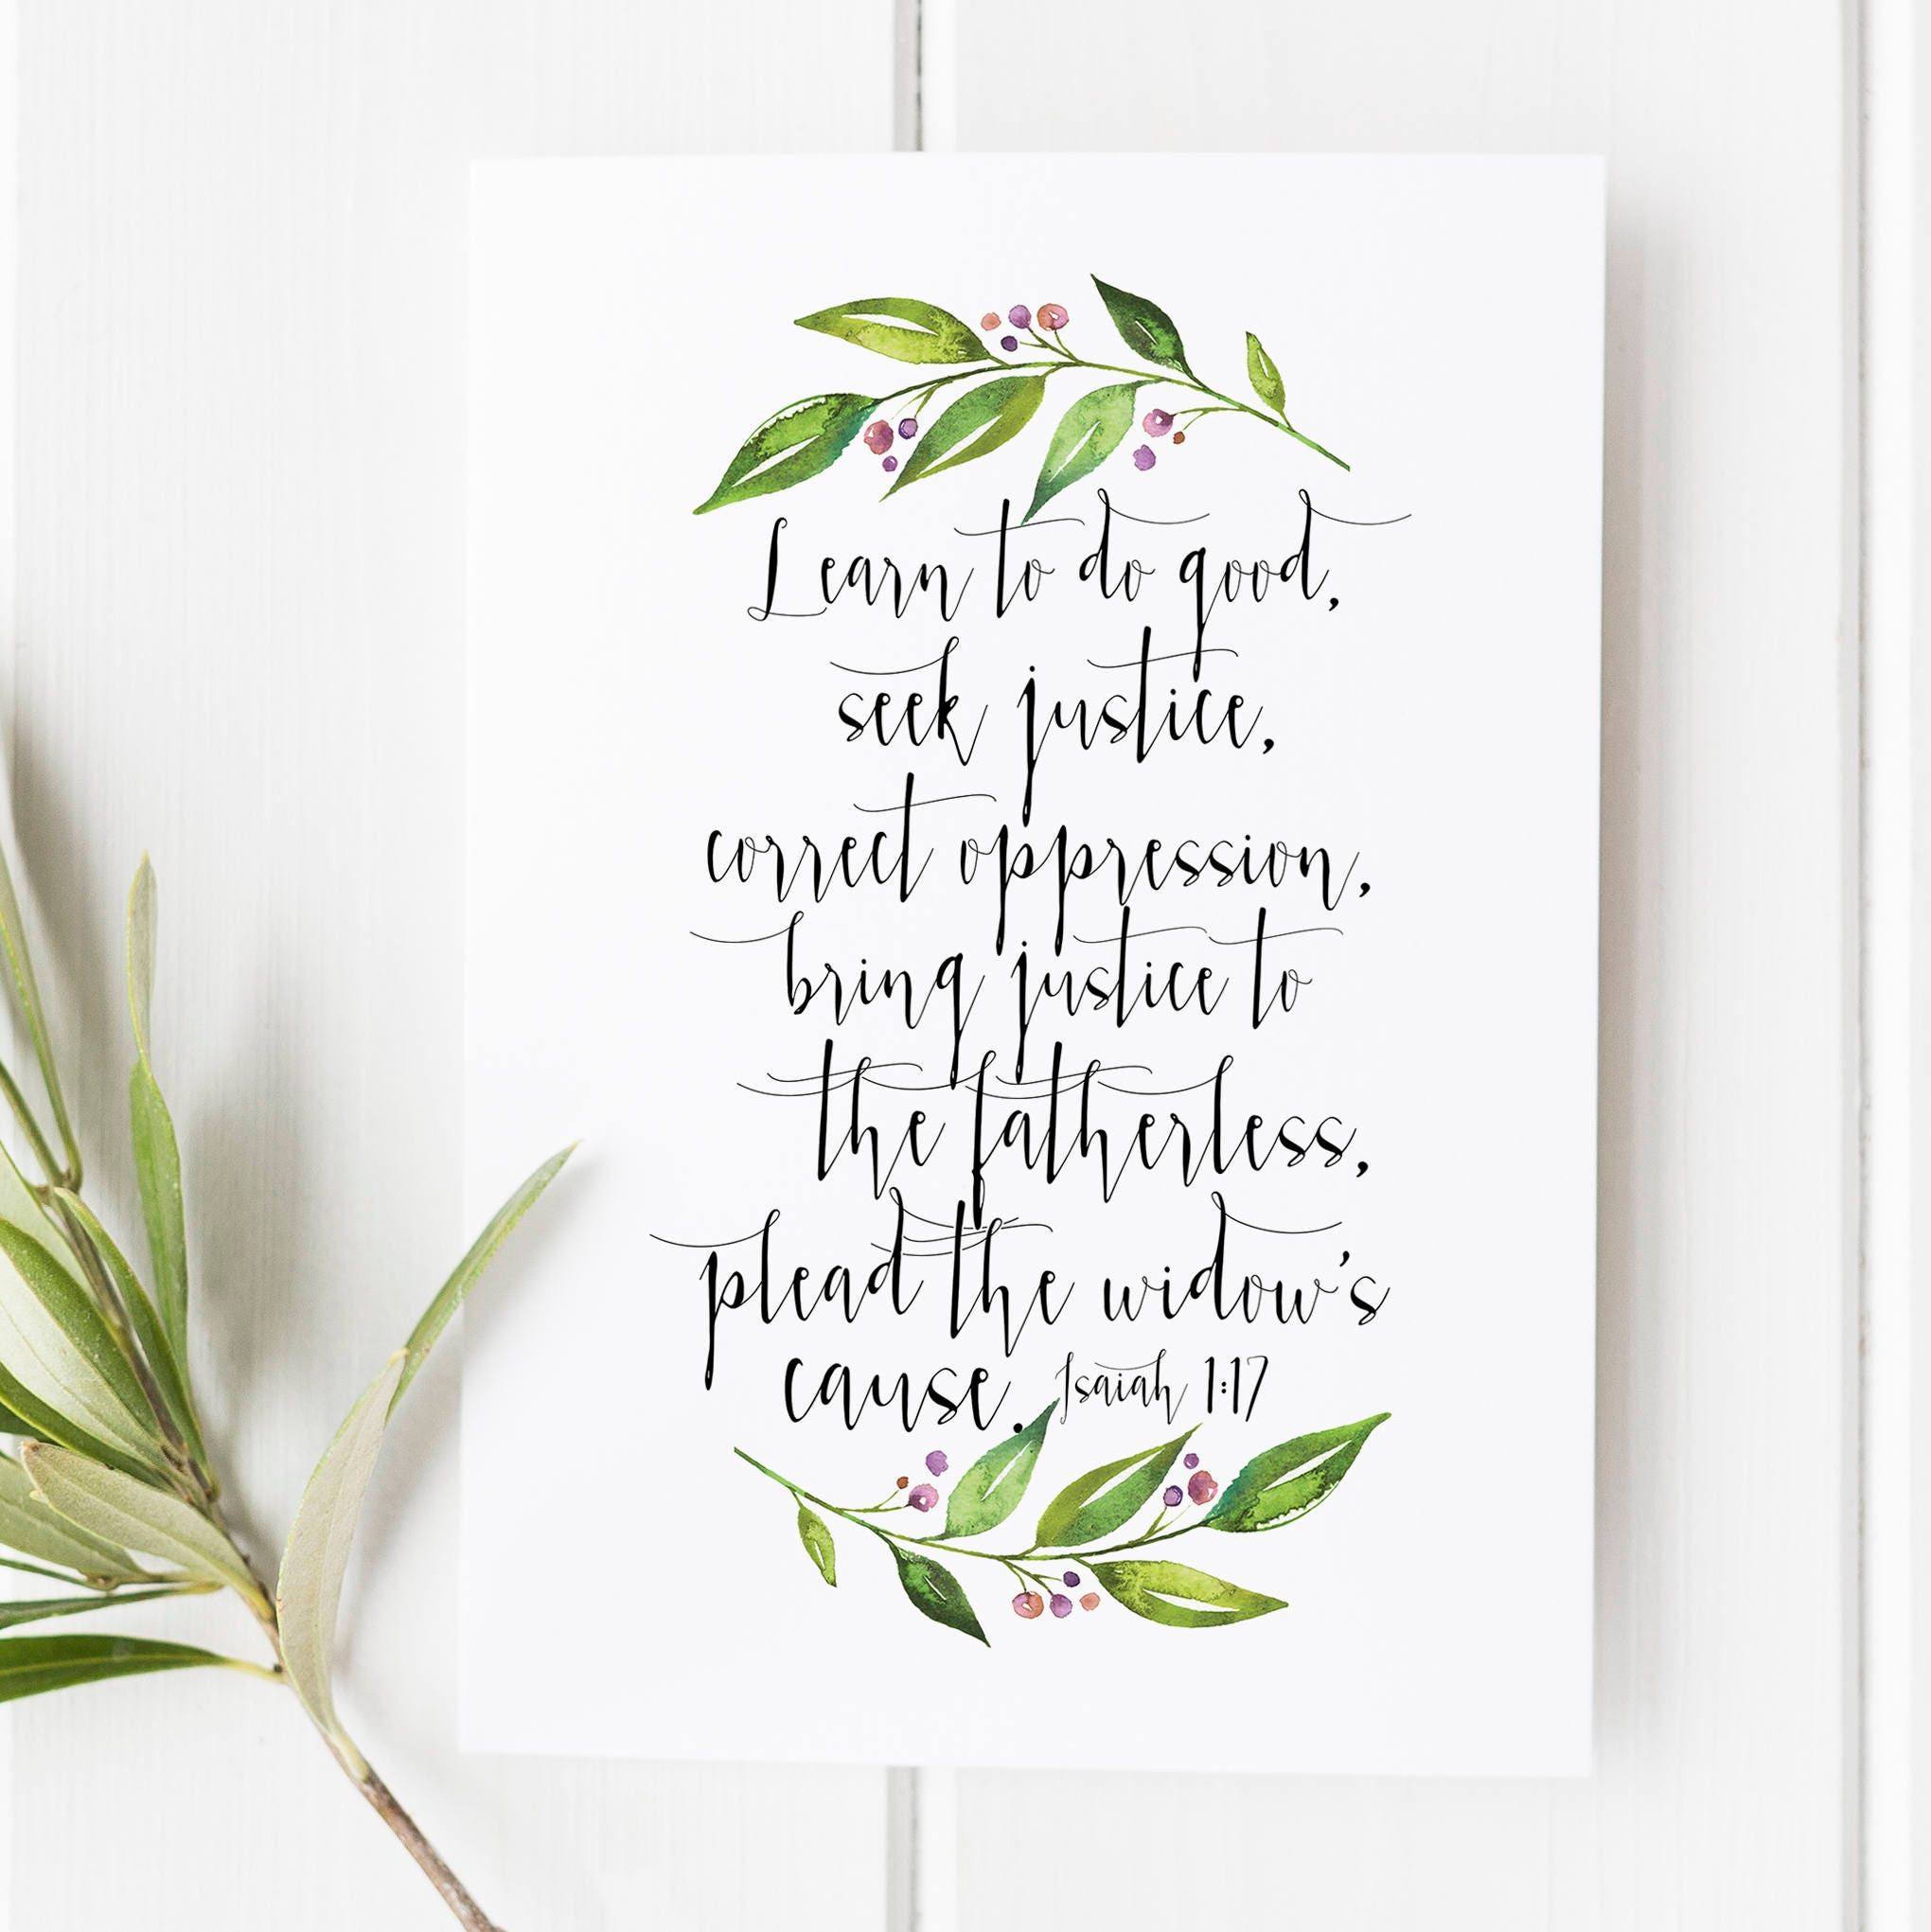 Learn to do good,
seek justice,
correct oppression,
bring justice to
the fatherless,
plead the widow's
cause. Isaiah 1:17